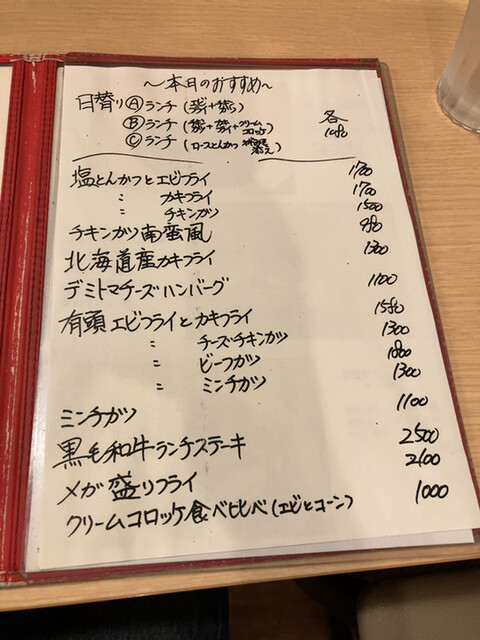 〜本日のおすすめ〜
日替り Ⓐランチ
Ⓑランチ クリームコロッケ
Ⓒランチ (ロースとんかつ
各
塩とんかつとエビフライ 1700
〃 カキフライ 1700
〃 チキンカツ 1500
チキンカツ南蛮風 980
北海道産カキフライ 1300
デミトマチーズハンバーグ 1100
有頭エビフライとカキフライ 1580
〃 チーズチキンカツ 1300
〃 ビーフカツ 1800
〃 ミンチカツ 1300
ミンチカツ 1100
黒毛和牛ランチステーキ 2500
メガ盛りフライ 2600
クリームコロッケ食べ比べ(エビとコーン) 1000